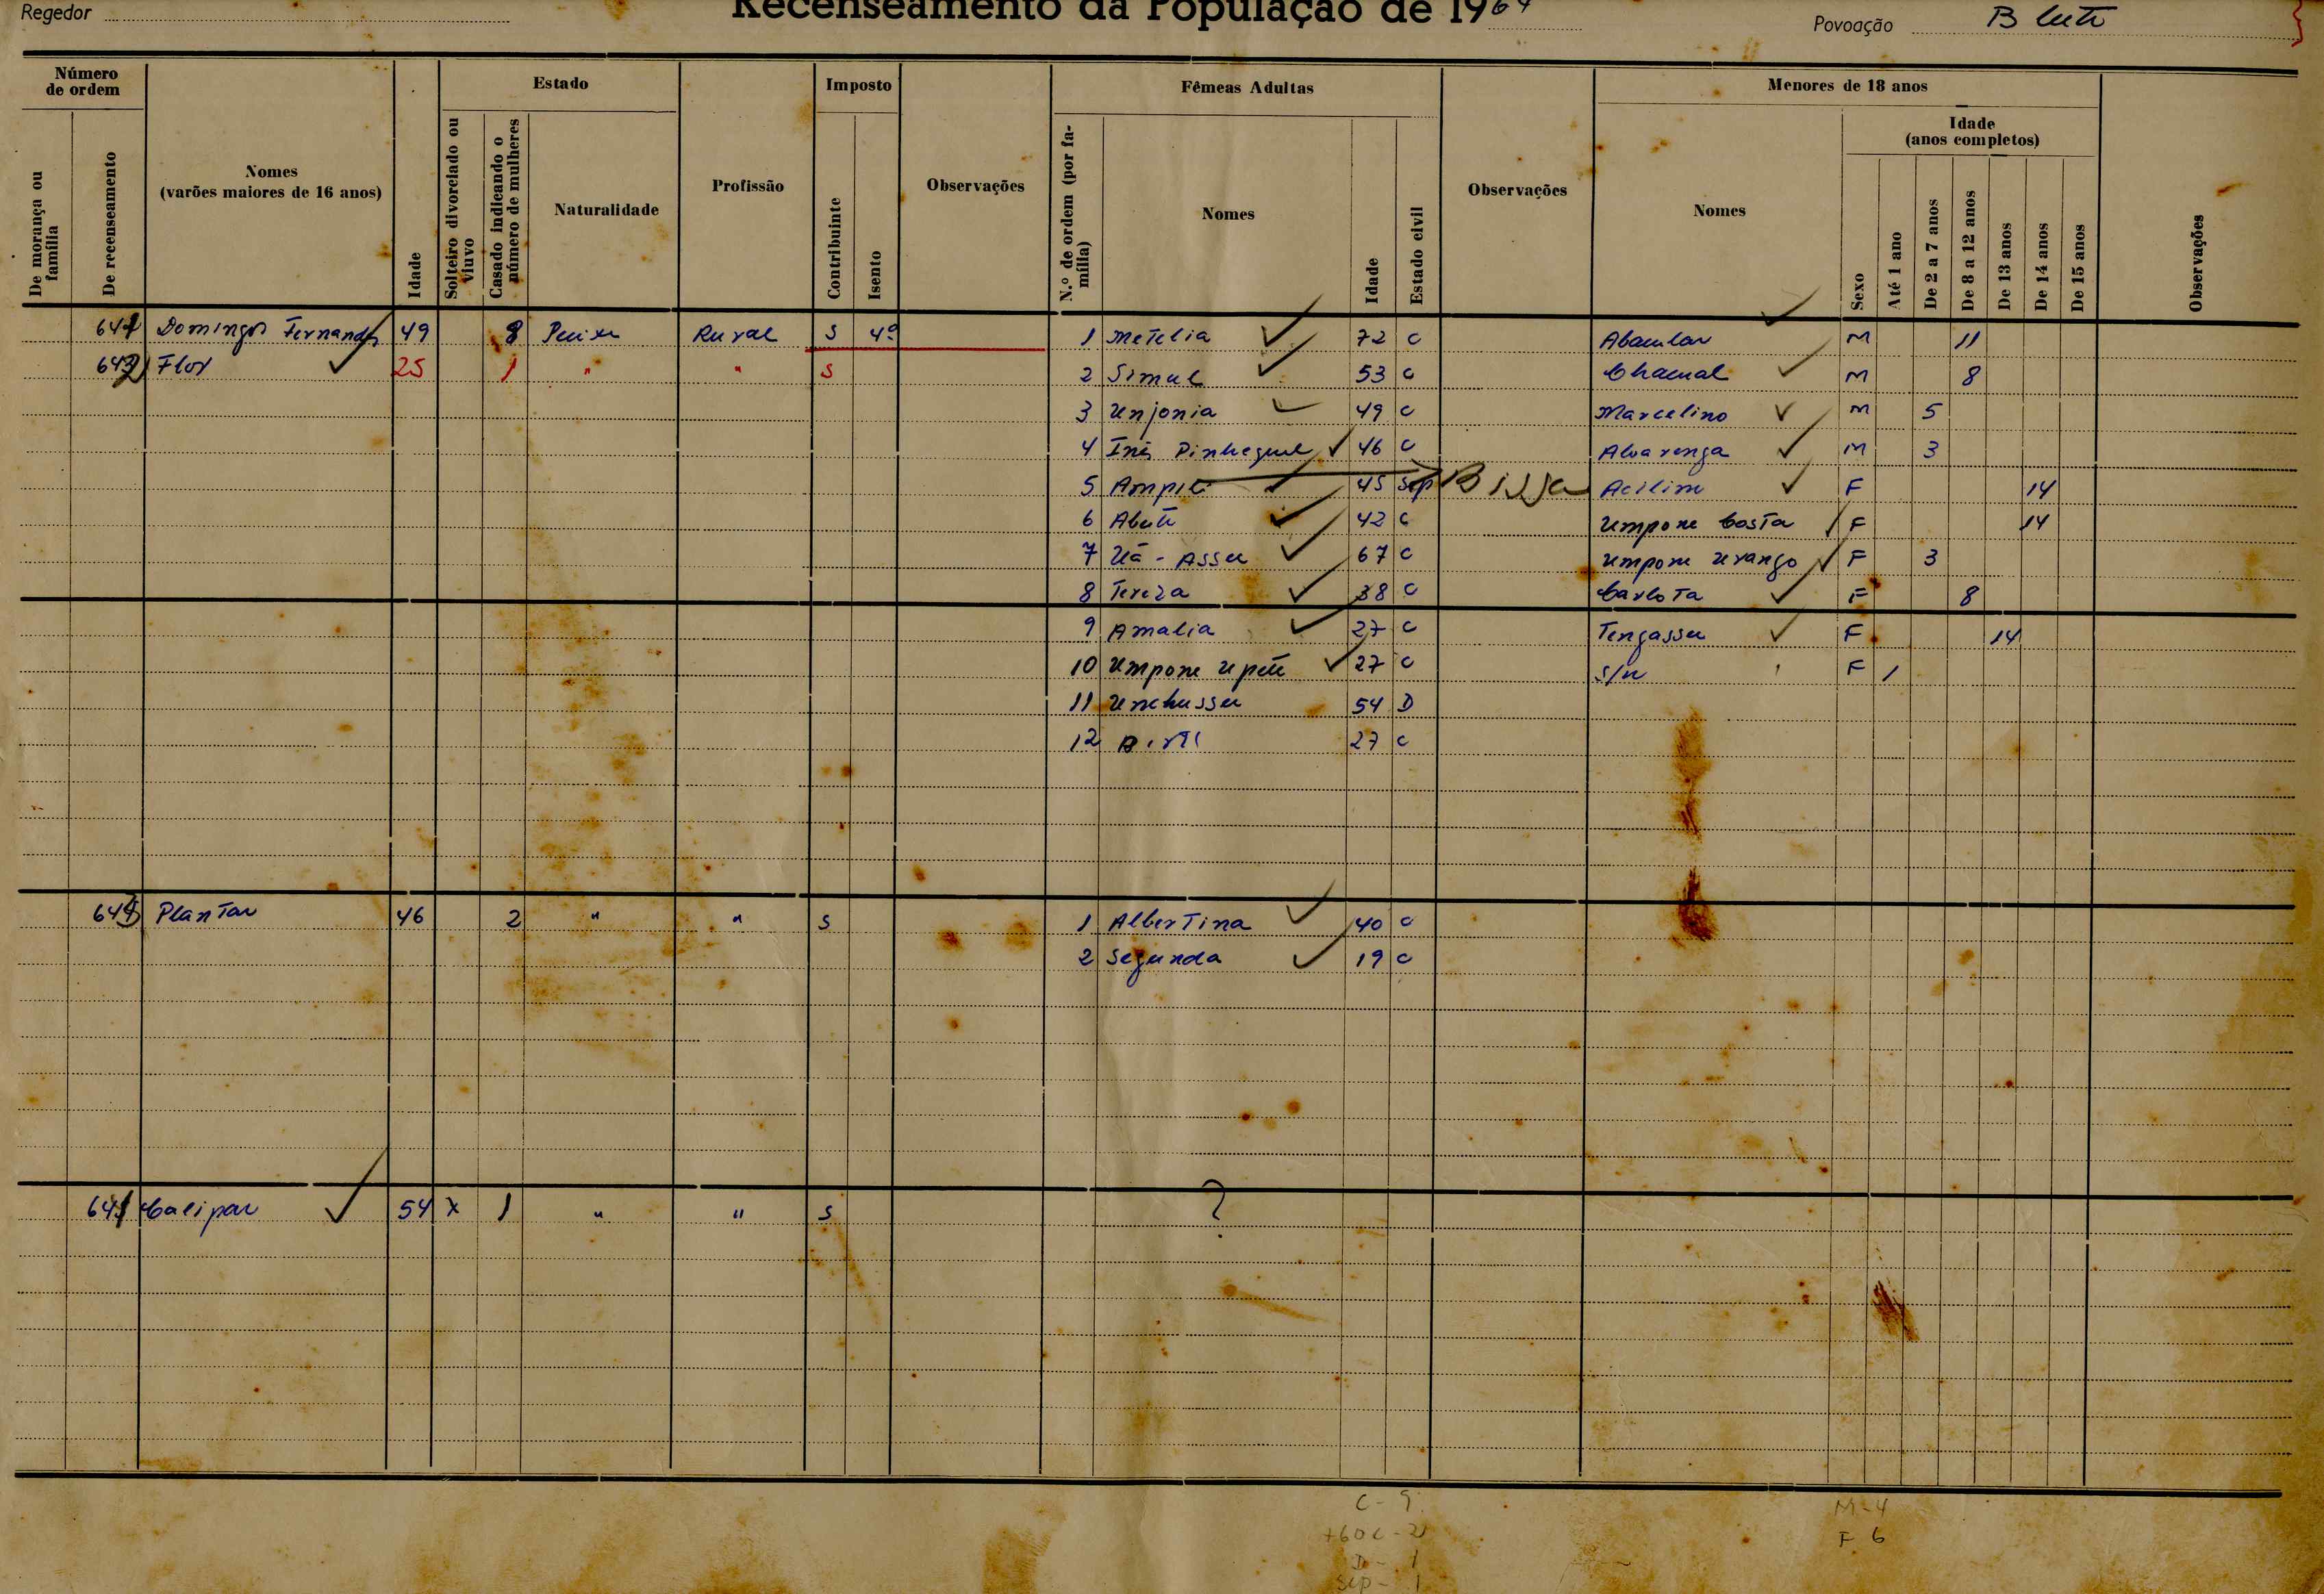 Regedor Recenseamento da População de 1964 Povoação B lute
Número de ordem
De morança ou família
De recenseamento
Nomes (varões maiores de 16 anos)
Idade
Estado
Solteiro divorciado ou viuvo
Casado indicando o número de mulheres
Naturalidade
Profissão
Imposto
Contribuinte
Isento
Observações
Fêmeas Adultas
N.º de ordem (por família)
Nomes
Idade
Estado civil
Observações
Menores de 18 anos
Nomes
Sexo
Idade (anos completos)
Até 1 ano
De 2 a 7 anos
De 8 a 12 anos
De 13 anos
De 14 anos
De 15 anos
Observações
641 Domingos Fernandes 49 8 Peixe Rural S 1 Metelia 72 C M 11
642 Flor 25 1 " " S 2 Simul 53 C Chacual M 8
3 Unjonia 49 C Marcelino M 5
4 Inês 46 C Alvarenga M 3
5 45 Sep Bissau F 14
6 Abuti 42 C Umpone Costa F 14
7 Uá - Assu 67 C Umpone Urango F 3
8 Tereza 38 C Carlota F 8
9 Amalia 27 C Tengassu F 14
10 Umpone 27 C S/n F 1
11 Unchussu 54 D
12 27 C
643 Plantar 46 2 " " S 1 Albertina 40 C
2 Segunda 19 C
Calipar 54 x 1 " " S ?
C - 9 M - 4
+60 C - 2 F 6
D - 1
Sep - 1